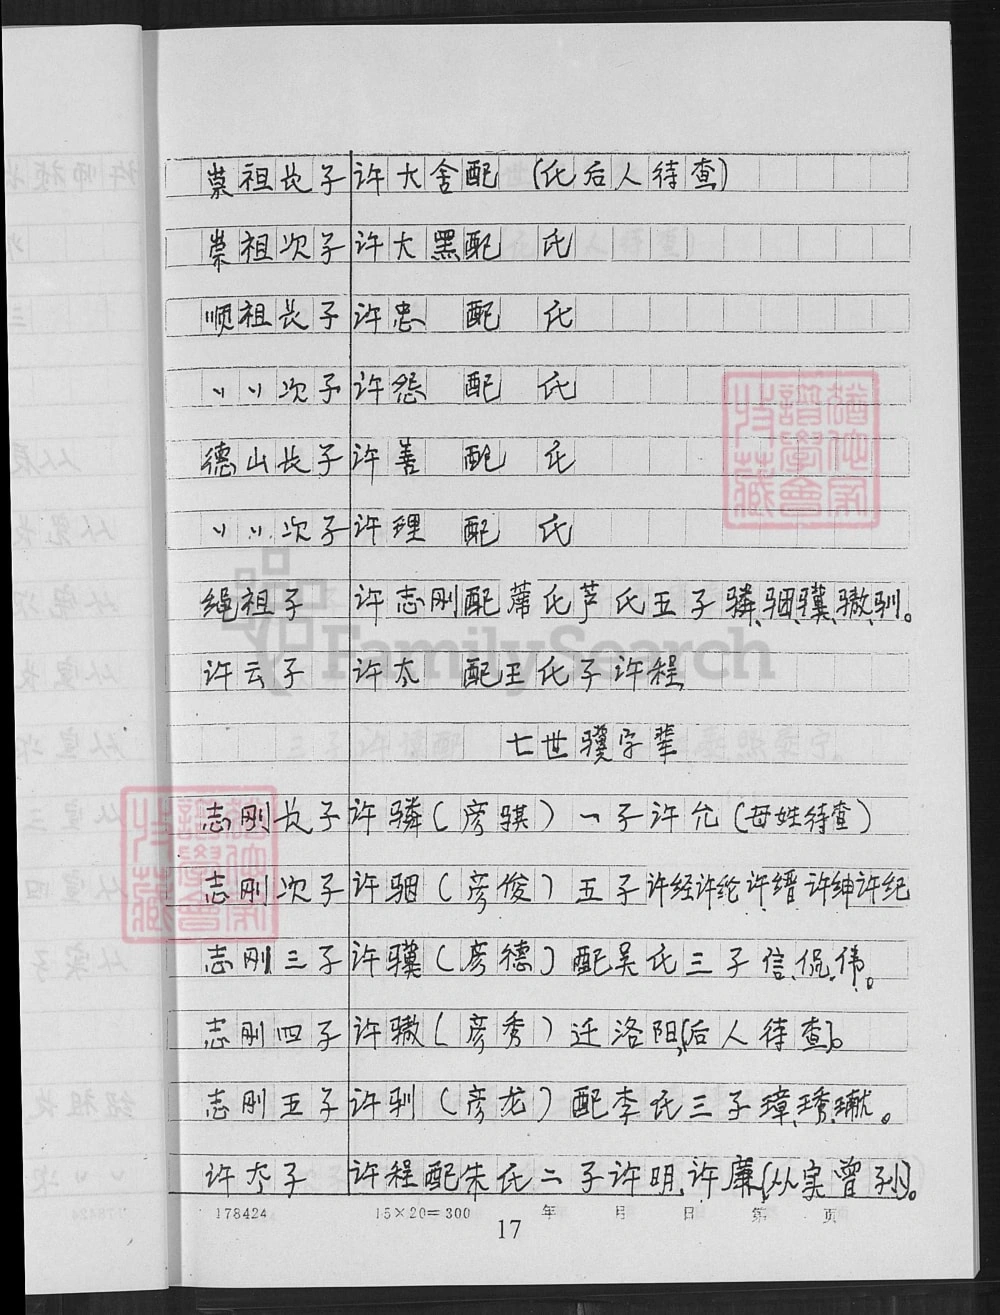 崇祖长子许大舍配(氏后人待查)
崇祖次子许大黑配 氏
顺祖长子许忠 配 氏
〃〃次子许怨 配 氏
德山长子许善 配 氏
〃〃次子许理 配 氏
绳祖子 许志刚配蓆氏芦氏五子骑、骃、骥、骏、驯。
许云子 许太 配王氏子许程
七世骥字辈
志刚长子许骑(彦骐)一子许允(母姓待查)
志刚次子许骃(彦俊)五子许经许纶许缙许绅许纪
志刚三子许骥(彦德)配吴氏三子信、侃、伟。
志刚四子许(彦秀)迁洛阳(后人待查)。
志刚五子许驯(彦龙)配李氏三子璋、琇、
许太子 许程配朱氏二子许明、许廉(从实曾孙)。
178424 15×20=300 年 月 日 第 页
17
FamilySearch
谱学会